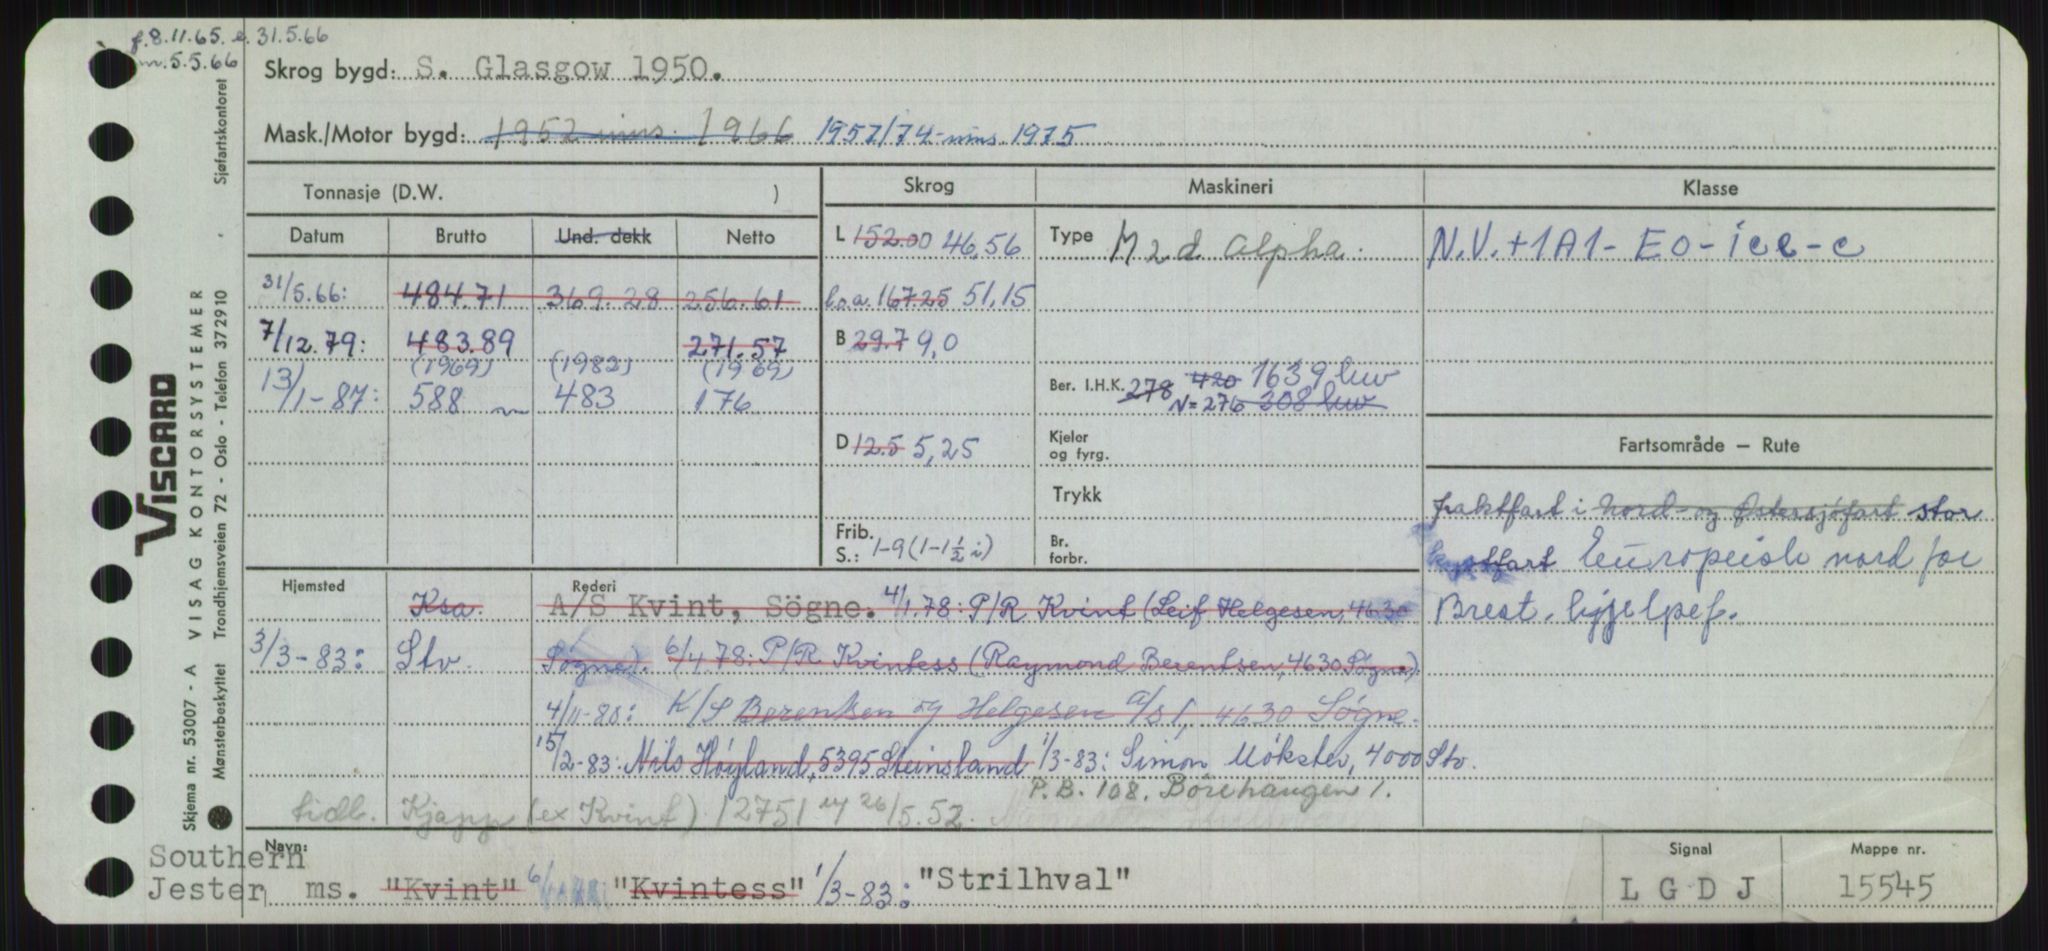 f. 8.11.65. e. 31.5.66
m. 5.5.66
Skrog bygd: S. Glasgow 1950.
Mask./Motor bygd: 1952 inns. 1966 1957/74-inns. 1975
Tonnasje (D.W. )
Skrog
Maskineri
Klasse
Datum
Brutto
Und. dekk
Netto
L 152.00 46,56
Type M 2 d. Alpha.
N.V.+1A1- E0- ice-c
31/5.66: 484.71 369.28 256.61
l.o.a. 167.25 51,15
7/12.79: 483.89 271.57
B 29.7 9,0
(1969) (1982) (1969)
13/1-87: 588 483 176
Ber. I.H.K. 278 420 1639 hw
N=276 308 hw
D 12.5 5,25
Kjeler
og fyrg.
Fartsområde — Rute
Trykk
fraktfart i Nord- og Østersjøfart stor
Frib.
S.: 1-9 (1-1½ i)
Br.
forbr.
kystfart Europeisk nord for
Brest. hjelpef.
Hjemsted
Rederi
Ksa. A/S Kvint, Sögne. 4/1.78: P/R Kvint (Leif Helgesen, 4630
3/3-83: Stv. Søgne). 6/4.78: P/R Kvintess (Raymond Berentsen, 4630 Søgne).
4/11-80: K/S Berentsen og Helgesen A/S I, 4630 Søgne.
15/2-83: Nils Høyland, 5395 Steinsland 1/3-83: Simon Møkster, 4000 Stv.
P.B. 108. Börehaugen 1.
tidl. Kjapp (ex Kvint) 12751 26/5.52.
Navn:
Southern
Jester ms. "Kvint" 6/ "Kvintess" 1/3-83: "Strilhval"
Signal
L G D J
Mappe nr.
15545
VISCARD
VISAG KONTORSYSTEMER
Skjema nr. 53007 - A
Mønsterbeskyttet Trondhjemsveien 72 - Oslo - Telefon 372910 - Sjøfartskontoret